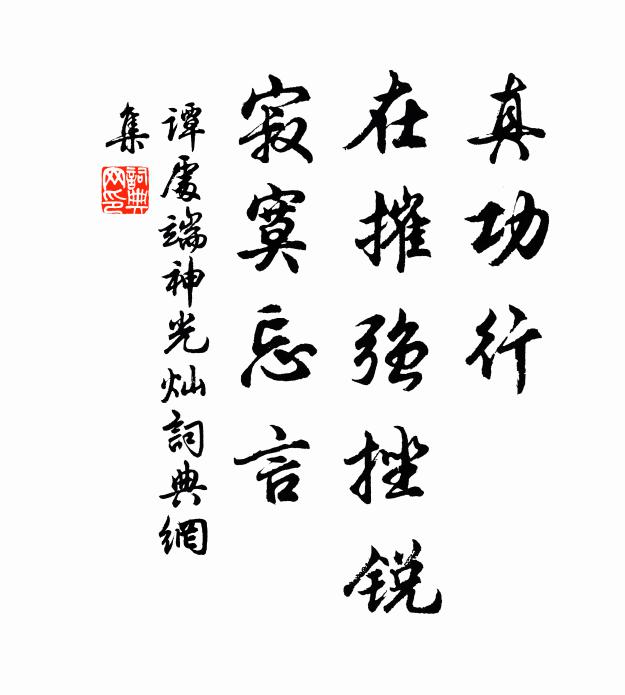 真功行
在摧强挫锐
寂寞忘言
谭處端神光灿詞典網
集
詞典
网印